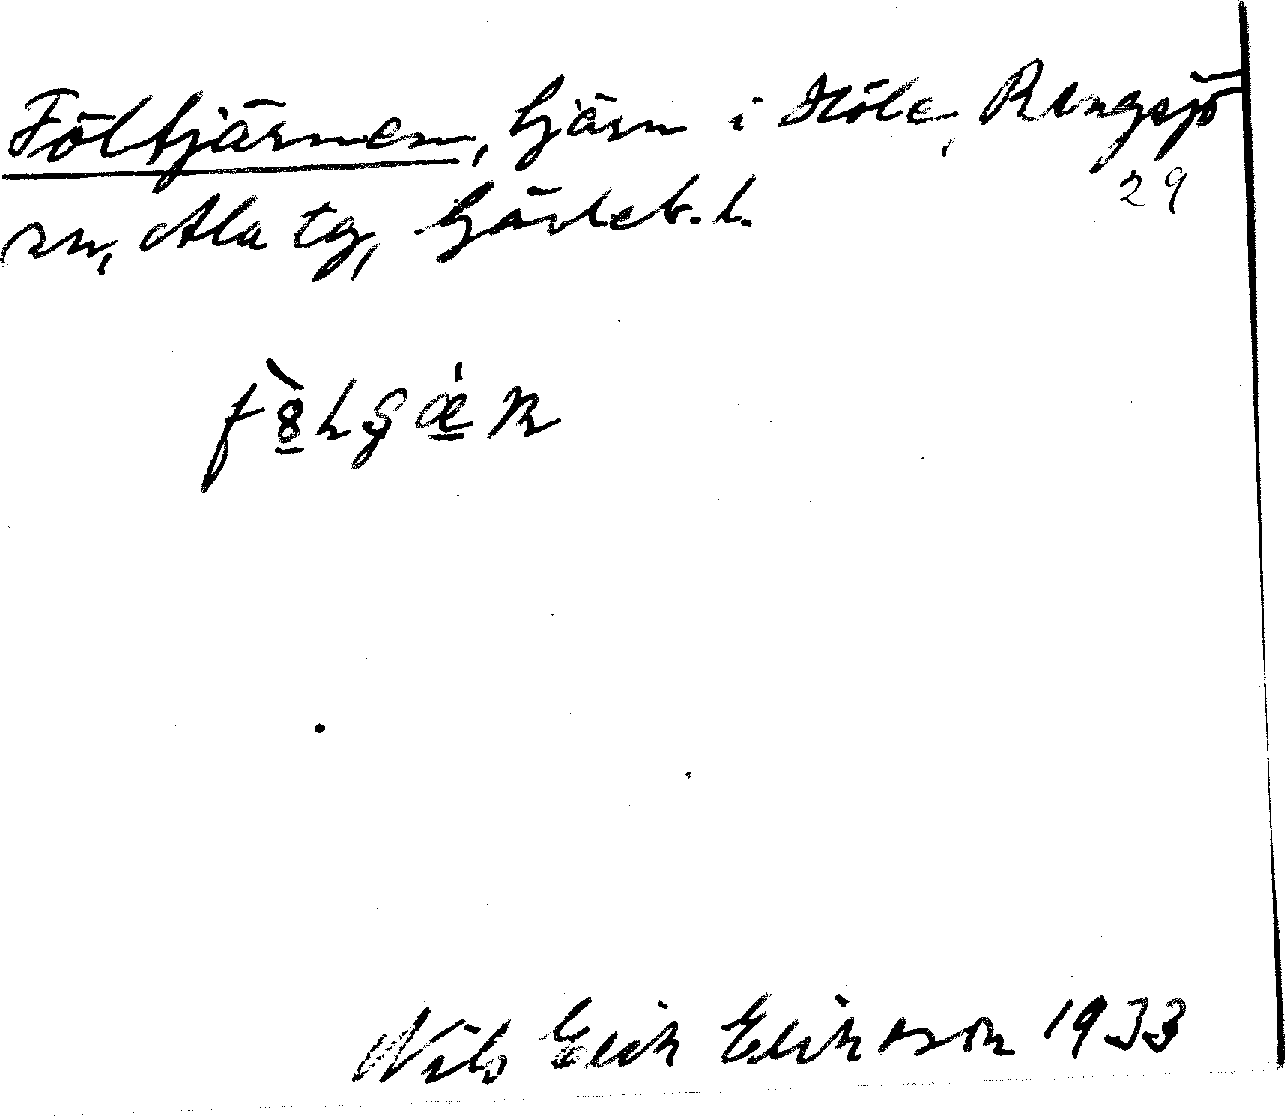 Föltjärnen, tjärn i Höle, Rengsjö
29
sn, Ala tg, Gävleb. l.
Nils Erik Eriksson 1933